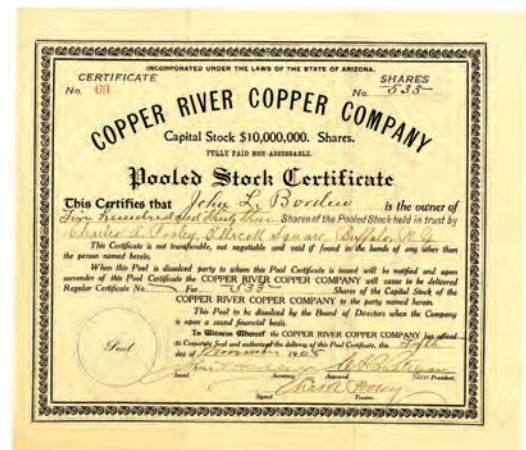 INCORPORATED UNDER THE LAWS OF THE STATE OF ARIZONA.
CERTIFICATE SHARES
No. 69 No. 535
COPPER RIVER COPPER COMPANY
Capital Stock $10,000,000. Shares.
FULLY PAID NON-ASSESSABLE.
Pooled Stock Certificate
This Certifies that John L. Borden is the owner of
Five hundred and thirty five Shares of the Pooled Stock held in trust by
Charles A. Pooley, Ellicott Square, Buffalo, N.Y.
This Certificate is not transferable, not negotiable and void if found in the hands of any other than
the person named herein.
When this Pool is dissolved party to whom this Pool Certificate is issued will be notified and upon
surrender of this Pool Certificate the COPPER RIVER COPPER COMPANY will cause to be delivered
Regular Certificate No. For 535 Shares of the Capital Stock of the
COPPER RIVER COPPER COMPANY to the party named herein.
This Pool to be dissolved by the Board of Directors when the Company
is upon a sound financial basis.
In Witness Whereof the COPPER RIVER COPPER COMPANY has affixed
its Corporate Seal and authorized the delivery of this Pool Certificate, this
day of 1905
Seal
Issued Secretary. Approved President.
Chas A Pooley
Signed Trustee.